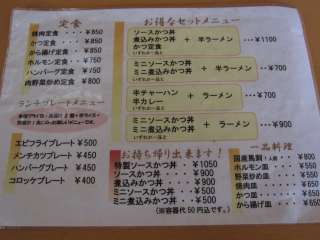 定食
焼肉定食 ・・ ¥850
かつ定食 ・・ ¥850
から揚げ定食 ・ ¥850
ホルモン定食 ・ ¥750
ハンバーグ定食 ¥750
肉野菜炒め定食 ¥800
ランチプレートメニュー
エビフライプレート ¥500
メンチカツプレート ¥450
ハンバーグプレート ¥450
コロッケプレート ¥400
お得なセットメニュー
ソースかつ丼
煮込みかつ丼 + 半ラーメン ・・・ ¥1100
かつ定食
いずれか一品と
ミニソースかつ丼
ミニ煮込みかつ丼 + 半ラーメン ・・・ ¥700
いずれか一品と
半チャーハン
半カレー + ラーメン ・・・ ¥700
いずれか一品と
ミニソースかつ丼
ミニ煮込みかつ丼 + ラーメン ・・・ ¥900
いずれか一品と
お持ち帰り出来ます!
特製ソースかつ丼 ・ ¥1050
ソースかつ丼 ・・・ ¥900
煮込みかつ丼 ・・・ ¥900
ミニソースかつ丼 ・ ¥500
ミニ煮込みかつ丼 ・ ¥500
※容器代50円込です。
一品料理
国産馬刺 1人前
ホルモン皿
野菜炒め皿
焼肉皿
かつ皿
から揚げ皿